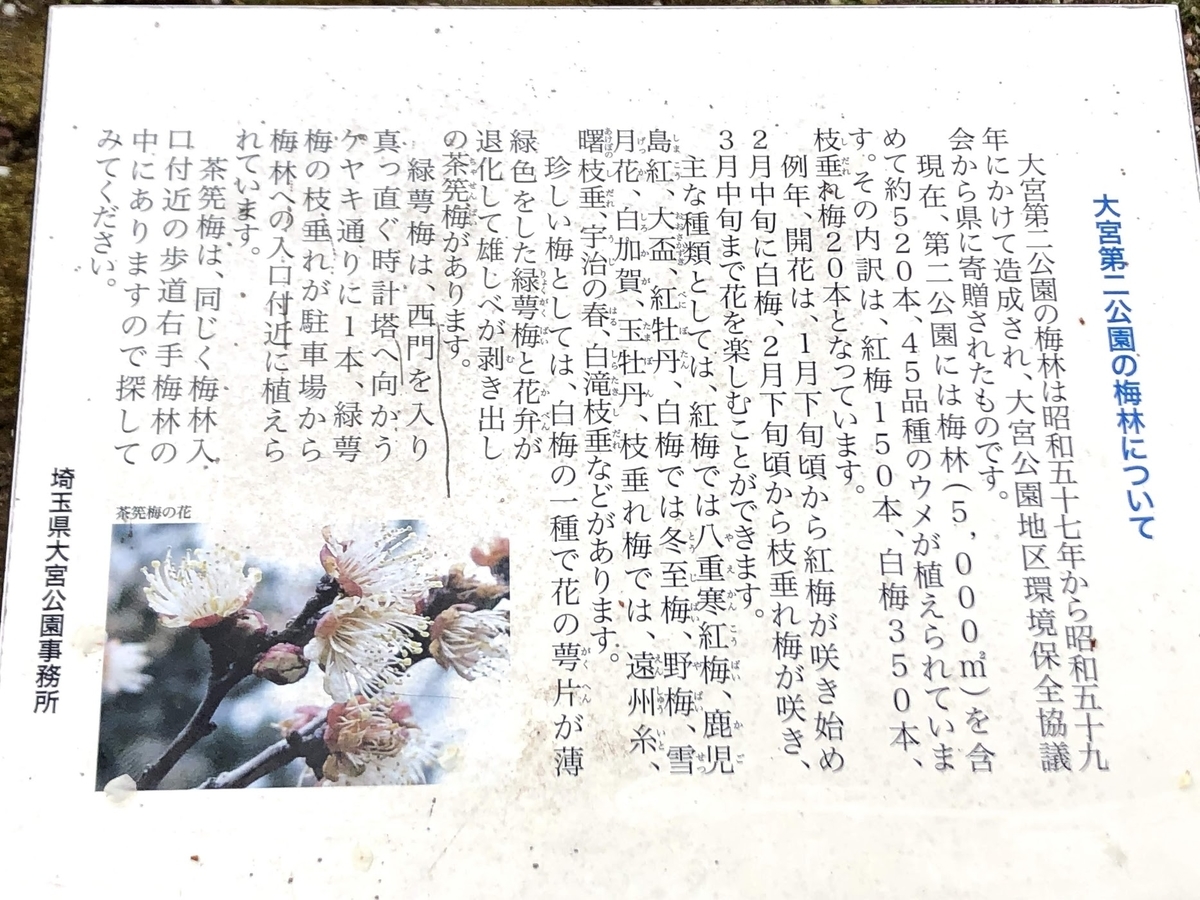 大宮第二公園の梅林について
大宮第二公園の梅林は昭和五十七年から昭和五十九
年にかけて造成され、大宮公園地区環境保全協議
会から県に寄贈されたものです。
現在、第二公園には梅林(5,000㎡)を含
めて約520本、45品種のウメが植えられていま
す。その内訳は、紅梅150本、白梅350本、
枝垂れ梅20本となっています。
例年、開花は、1月下旬頃から紅梅が咲き始め
2月中旬に白梅、2月下旬頃から枝垂れ梅が咲き、
3月中旬まで花を楽しむことができます。
主な種類としては、紅梅では八重寒紅梅、鹿児
島紅、大盃、紅牡丹、白梅では冬至梅、野梅、雪
月花、白加賀、玉牡丹、枝垂れ梅では、遠州糸、
曙枝垂、宇治の春、白滝枝垂などがあります。
珍しい梅としては、白梅の一種で花の萼片が薄
緑色をした緑萼梅と花弁が
退化して雄しべが剥き出し
の茶筅梅があります。
緑萼梅は、西門を入り
真っ直ぐ時計塔へ向かう
ケヤキ通りに1本、緑萼
梅の枝垂れが駐車場から
梅林への入口付近に植えら
れています。
茶筅梅は、同じく梅林入
口付近の歩道右手梅林の
中にありますので探して
みてください。
茶筅梅の花
埼玉県大宮公園事務所